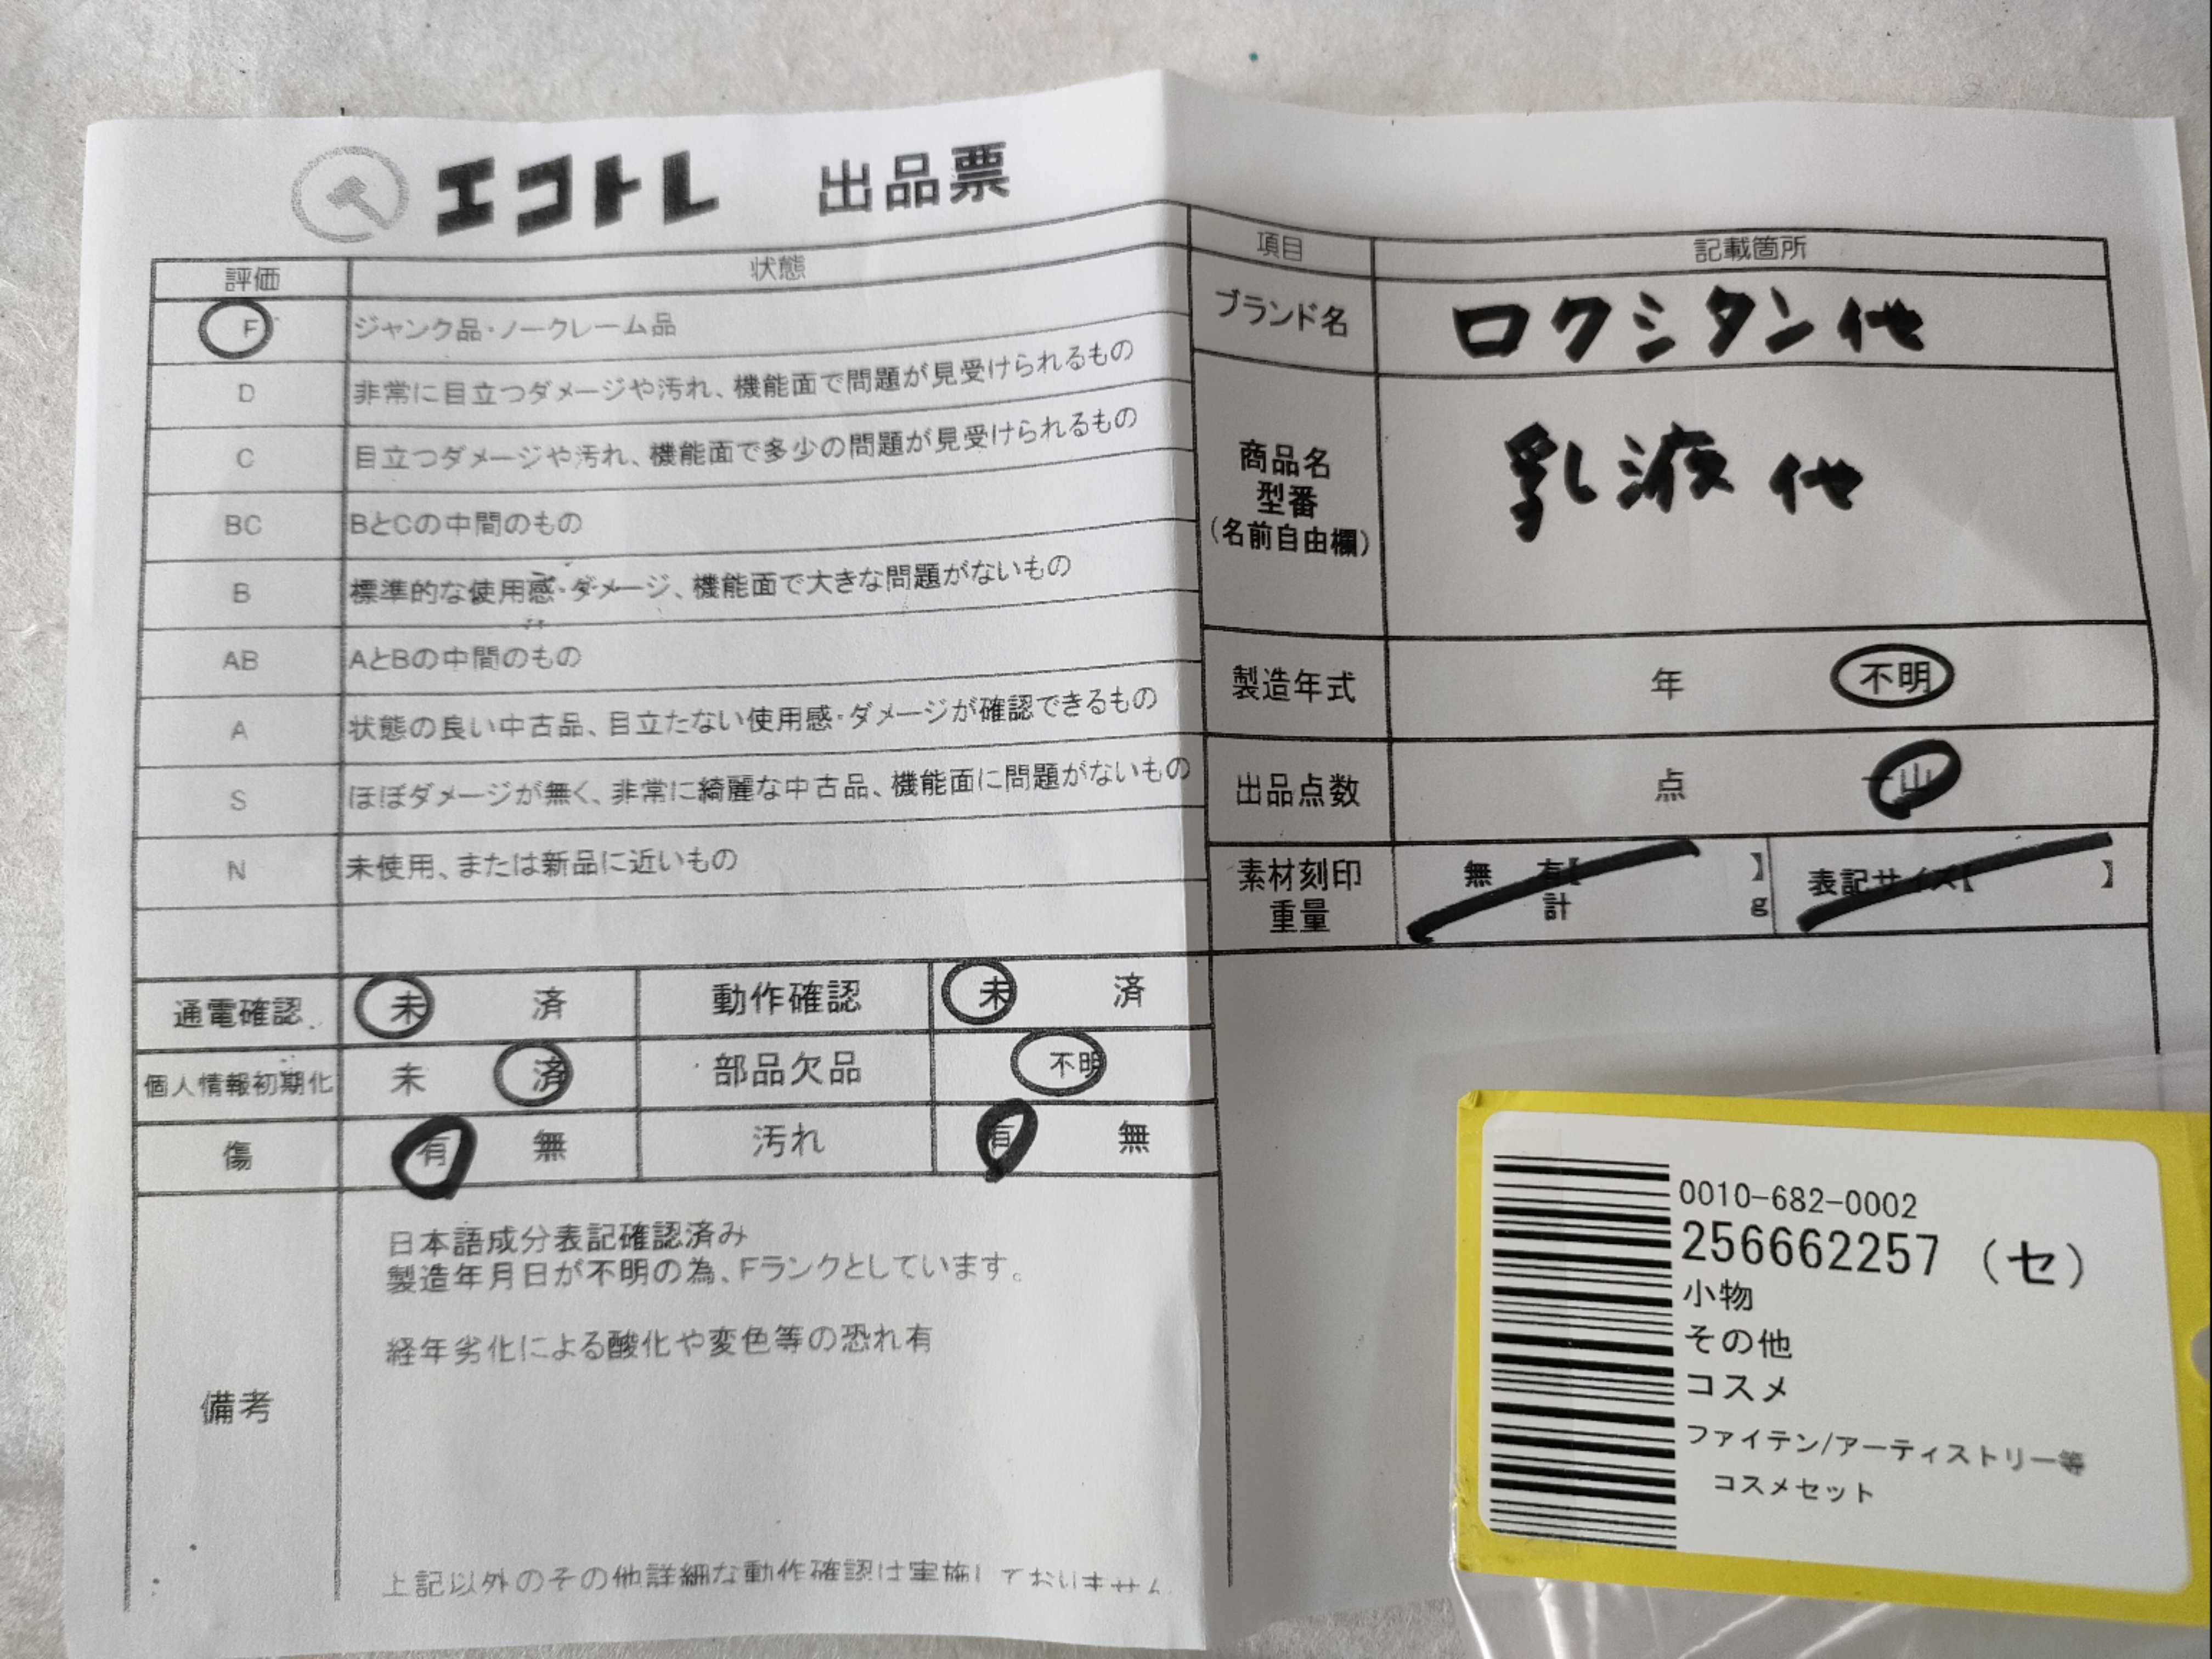 エコトレ 出品票
評価 状態
F ジャンク品・ノークレーム品
D 非常に目立つダメージや汚れ、機能面で問題が見受けられるもの
C 目立つダメージや汚れ、機能面で多少の問題が見受けられるもの
BC BとCの中間のもの
B 標準的な使用感・ダメージ、機能面で大きな問題がないもの
AB AとBの中間のもの
A 状態の良い中古品、目立たない使用感・ダメージが確認できるもの
S ほぼダメージが無く、非常に綺麗な中古品、機能面に問題がないもの
N 未使用、または新品に近いもの
通電確認 未 済 動作確認 未 済
個人情報初期化 未 済 部品欠品 不明
傷 有 無 汚れ 有 無
備考
日本語成分表記確認済み
製造年月日が不明の為、Fランクとしています。
経年劣化による酸化や変色等の恐れ有
上記以外のその他詳細な動作確認は実施しておりません
項目 記載箇所
ブランド名 ロクシタン他
商品名
型番
(名前自由欄)
乳液 他
製造年式 年 不明
出品点数 点 一山
素材刻印 無 有【 】 表記サイズ【 】
重量 計 g
0010-682-0002
256662257 (セ)
小物
その他
コスメ
ファイテン/アーティストリー等
コスメセット